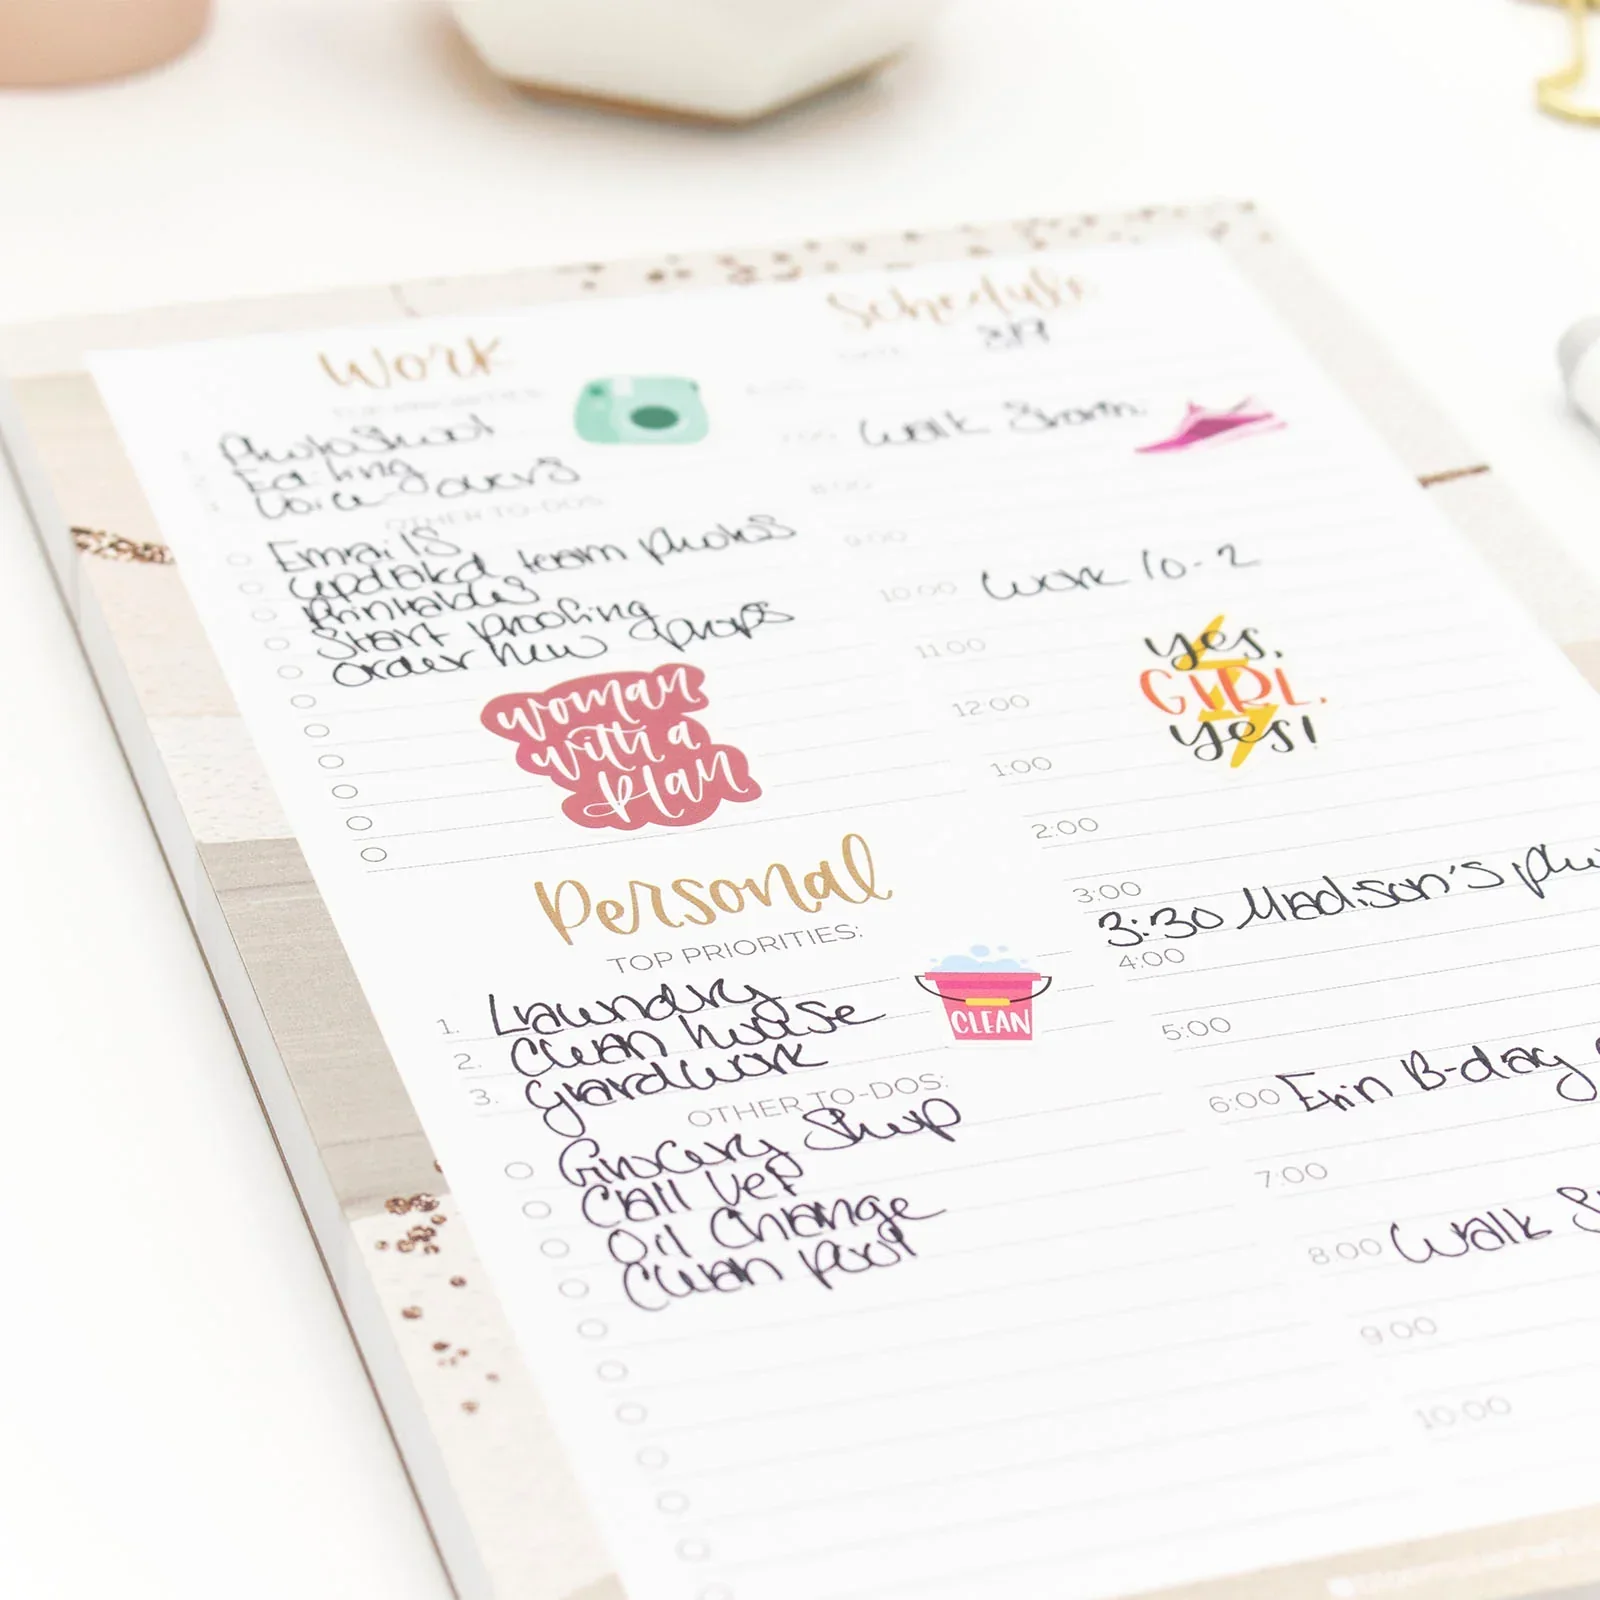 Work
Photoshoot
Editing
Voice-overs
OTHER TO-DOS:
Emails
updated team photos
Printables
Start proofing
order new props
woman
with a
plan
Personal
TOP PRIORITIES:
1. Laundry
2. Clean house
3. yardwork
CLEAN
OTHER TO-DOS:
Grocery Shop
Call Vet
Oil Change
Clean pool
Schedule
Walk
8:00
9:00
10:00 Work 10-2
11:00
yes,
GIRL,
yes!
12:00
1:00
2:00
3:00
3:30 Madison's
4:00
5:00
6:00 Erin B-day
7:00
8:00 Walk
9:00
10:00